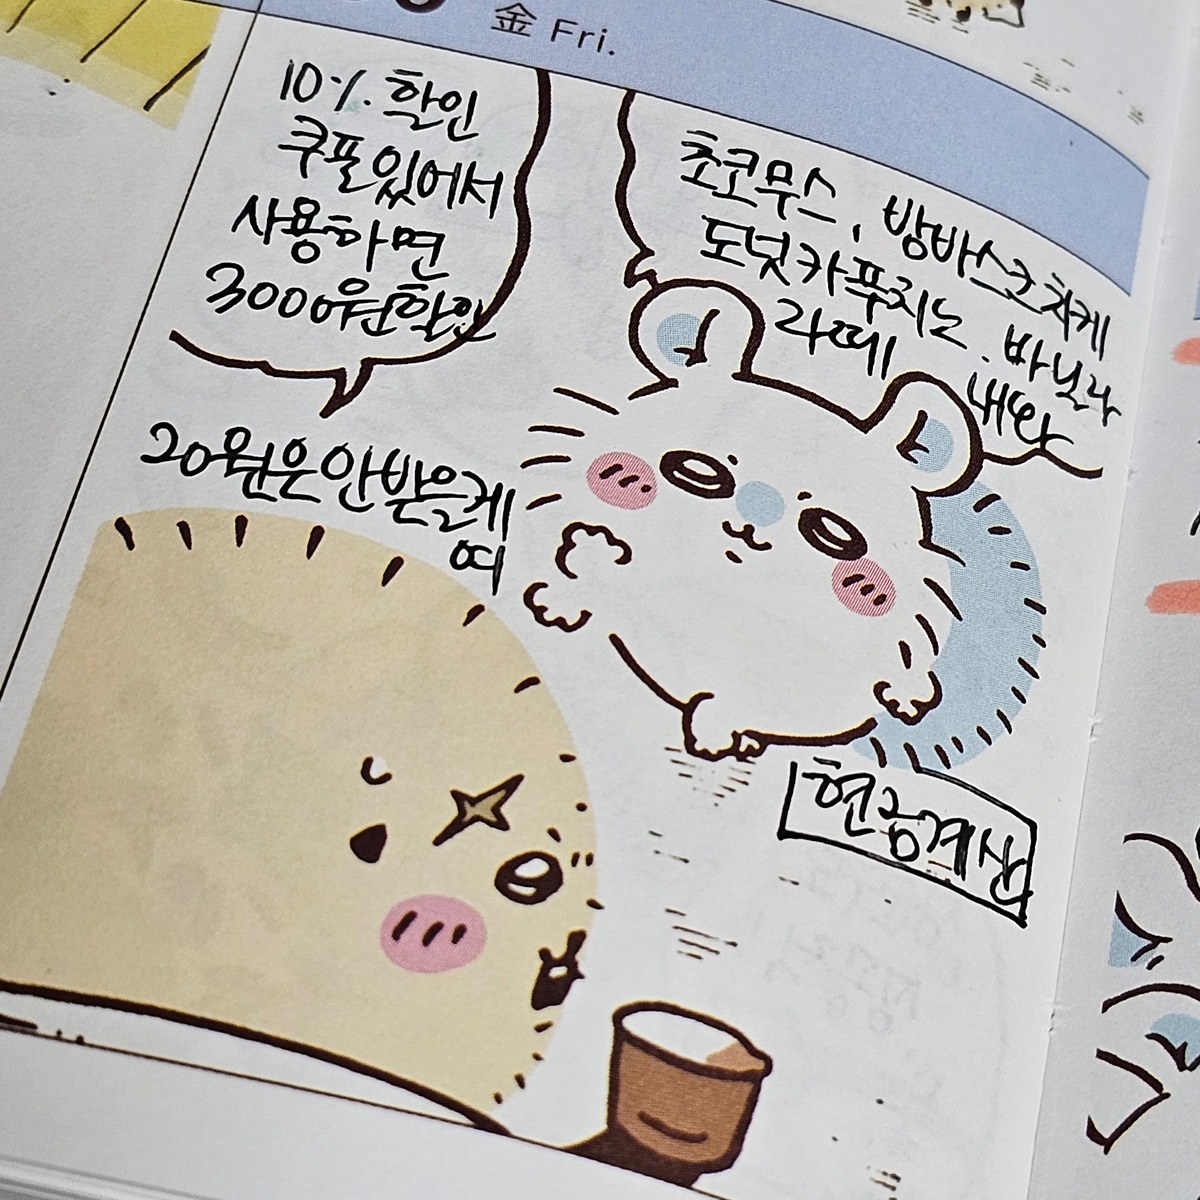 金 Fri.
10% 할인
쿠폰있어서
사용하면
3000원할인
초코무스, 방바스크치케
도넛카푸치노. 바닐라
라떼 내와
20원은안받을게
여
현금계산